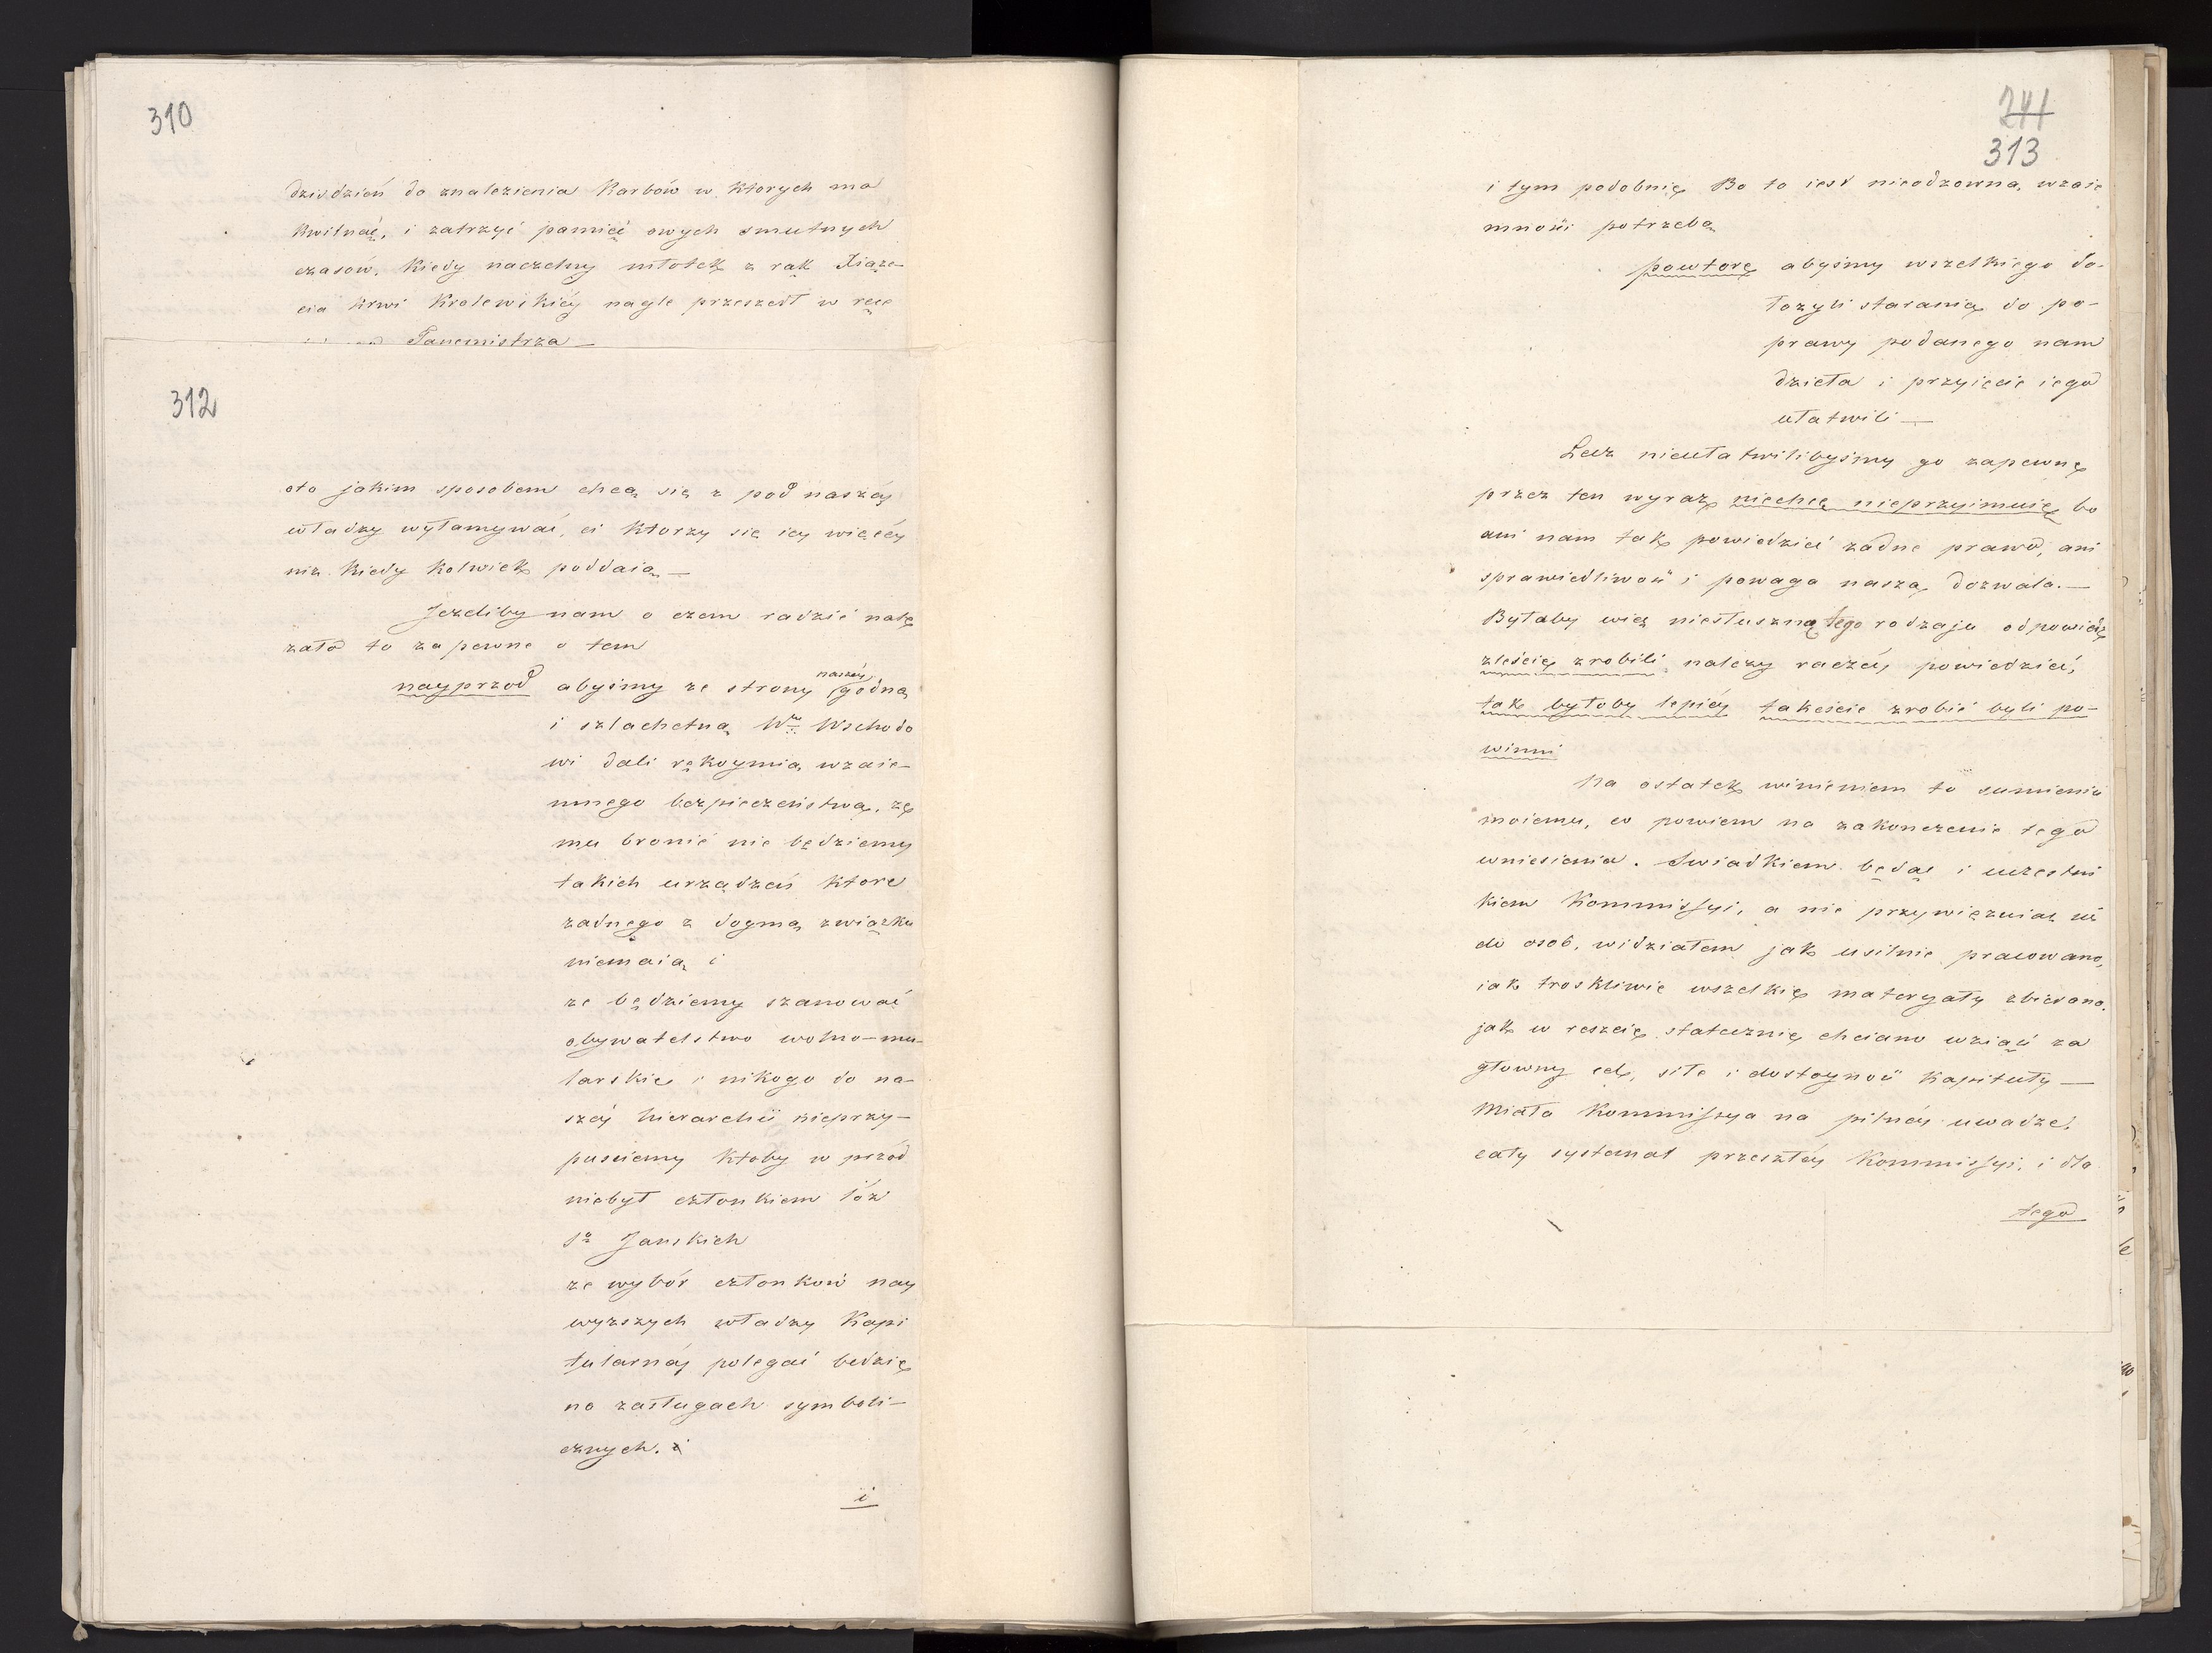 310
dziś dzień do znalezienia Karbów w ktorych ma
Kwitnąć, i zatrzyć pamięć owych smutnych
czasów, Kiedy naczelny młotek z rąk Xiąże-
cia krwi Krolewskiey nagle przeszedł w ręce
Tancmistrza —
312
oto jakim sposobem chcą się z pod naszéy
władzy wyłamywać, ci ktorzy się iey więcéy
niz Kiedy Kolwiek poddaią —
Jezeliby nam o czem radzić nale
zało to zapewne o tem
nayprzod abyśmy ze strony naszéy godną
i szlachetną Wu Wschodo
wi dali rękoymią wzaie-
mnego bezpieczeństwa, ze
mu bronić nie będziemy
takich urządzeń ktore
zadnego z dogmą związku
niemaią i
ze będziemy szanować
obywatelstwo wolno-mu-
larskie i nikogo do na-
széy hierarchii nieprzy-
puściemy ktoby w przód
niebył członkiem lóz
So Janskich
ze wybór członków nay
wyzszych władzy Kapi
tularnéy polegać będzie
na zasługach symboli-
cznych. i
i
241
313
i tym podobnie Bo to iest nieodzowna, wzaie
mności potrzeba
powtore abyśmy wszelkiego do-
łozyli starania do po-
prawy podanego nam
dzieła i przyięcie iego
ułatwili —
Lecz nieułatwilibyśmy go zapewne
przez ten wyraz niechcę nieprzyimuię bo
ani nam tak powiedzieć zadne prawo, ani
sprawiedliwość i powaga nasza dozwala. —
Byłaby więc niesłuszną tego rodzaju odpowiedź
zleście zrobili nalezy raczéy powiedzieć,
tak byłoby lepiéy takeście zrobić byli po-
winni
Na ostatek winieniem to sumieniu
moiemu, co powiem na zakonczenie tego
wniesienia. Swiadkiem będąc i uczestni
kiem Kommissyi, a nie przywięzuiąc się
do osob, widziałem jak usilnie pracowano,
iak troskliwie wszelkie materyały zbierano,
jak w reszcie statecznie chciano wziąść za
głowny cel, siłę i dostoyność Kapituły —
Miała Kommissya na pilnéy uwadze,
cały systemat przeszłéy Kommissyi, i dla
tego